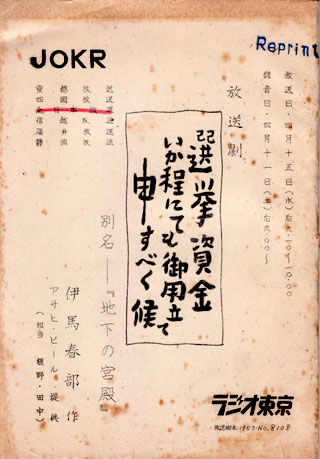 JOKR
Reprint
放送日・四月十五日(水)后九・一〇〜一〇・〇〇
録音日・四月十一日(土)后九・〇〇〜
放送劇
選挙資金
いか程にても御用立て
申すべく候
別名―『地下の宮殿』
伊馬春部 作
アサヒビール 提供
(担当 植野・田中)
ラジオ東京
放送脚本・1953・No.8108